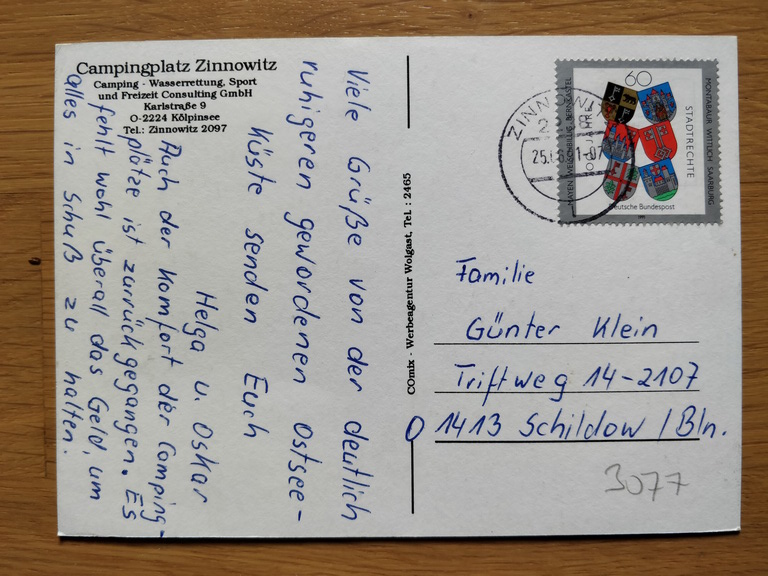 Campingplatz Zinnowitz
Camping · Wasserrettung, Sport
und Freizeit Consulting GmbH
Karlstraße 9
O-2224 Kölpinsee
Tel.: Zinnowitz 2097
Viele Grüße von der deutlich
ruhigeren gewordenen Ostsee-
küste senden Euch
Helga u. Oskar
Auch der Komfort der Camping-
plätze ist zurückgegangen. Es
fehlt wohl überall das Geld, um
alles in Schuß zu halten.
COmix - Werbeagentur Wolgast, Tel.: 2465
60
MAYEN WELSCHBILLIG BERNKASTEL
MONTABAUR WITTLICH SAARBURG
JAHRE
STADTRECHTE
Deutsche Bundespost
ZINNOWI
Familie
Günter Klein
Triftweg 14-2107
O 1413 Schildow / Bln.
3077